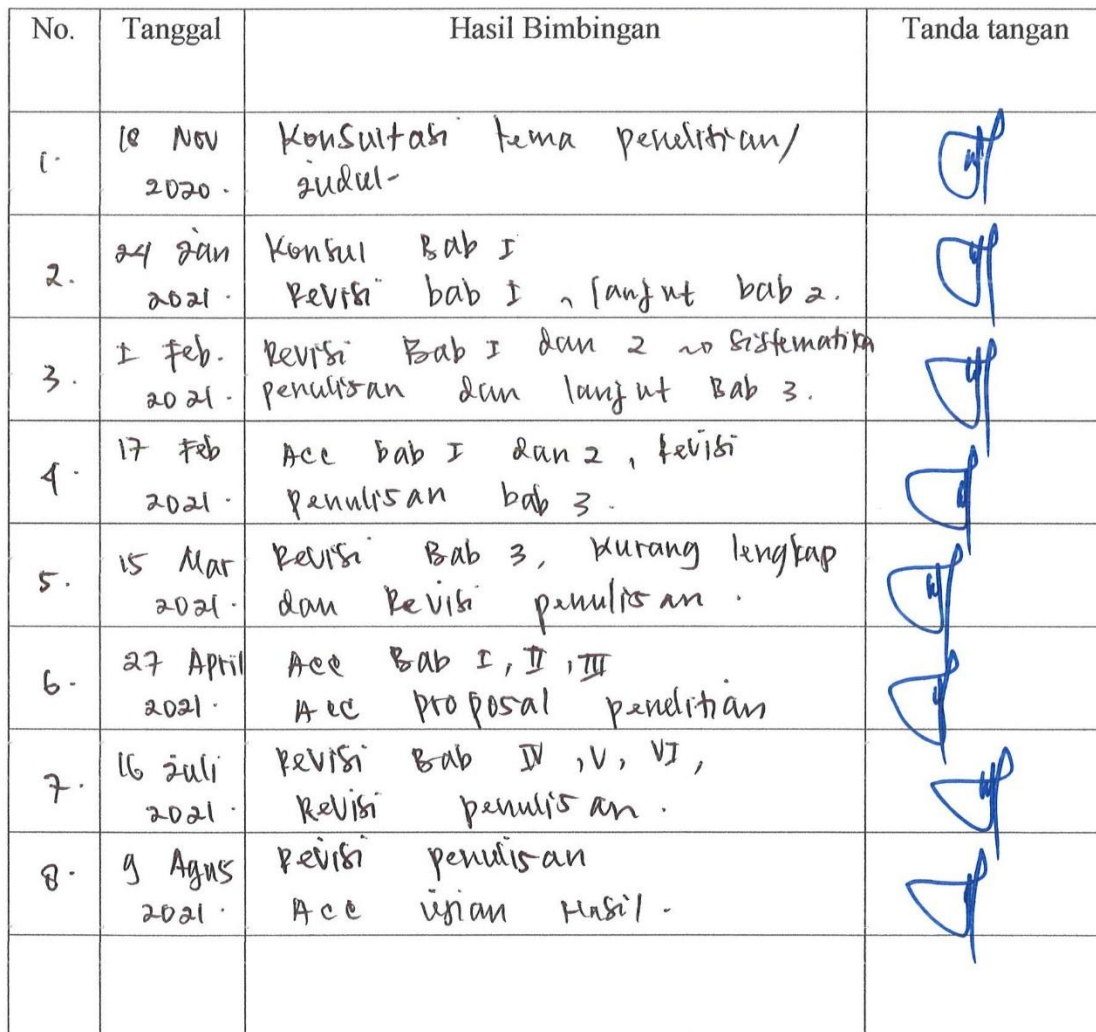 No. Tanggal Hasil Bimbingan Tanda tangan
1. 18 Nov Konsultasi tema penelitian/
2020. Judul-
2. 24 Jan Konsul Bab I
2021. Revisi bab I, lanjut bab 2.
3. I Feb. Revisi Bab I dan 2 ~> Sistematika
2021. penulisan dan lanjut Bab 3.
4. 17 Feb Acc bab I dan 2, revisi
2021. penulisan bab 3.
5. 15 Mar Revisi Bab 3, kurang lengkap
2021. dan Revisi penulisan.
6. 27 April Acc Bab I, II, III
2021. Acc proposal penelitian
7. 16 Juli Revisi Bab IV, V, VI,
2021. Revisi penulisan.
8. 9 Agus Revisi penulisan
2021. Acc ujian Hasil.